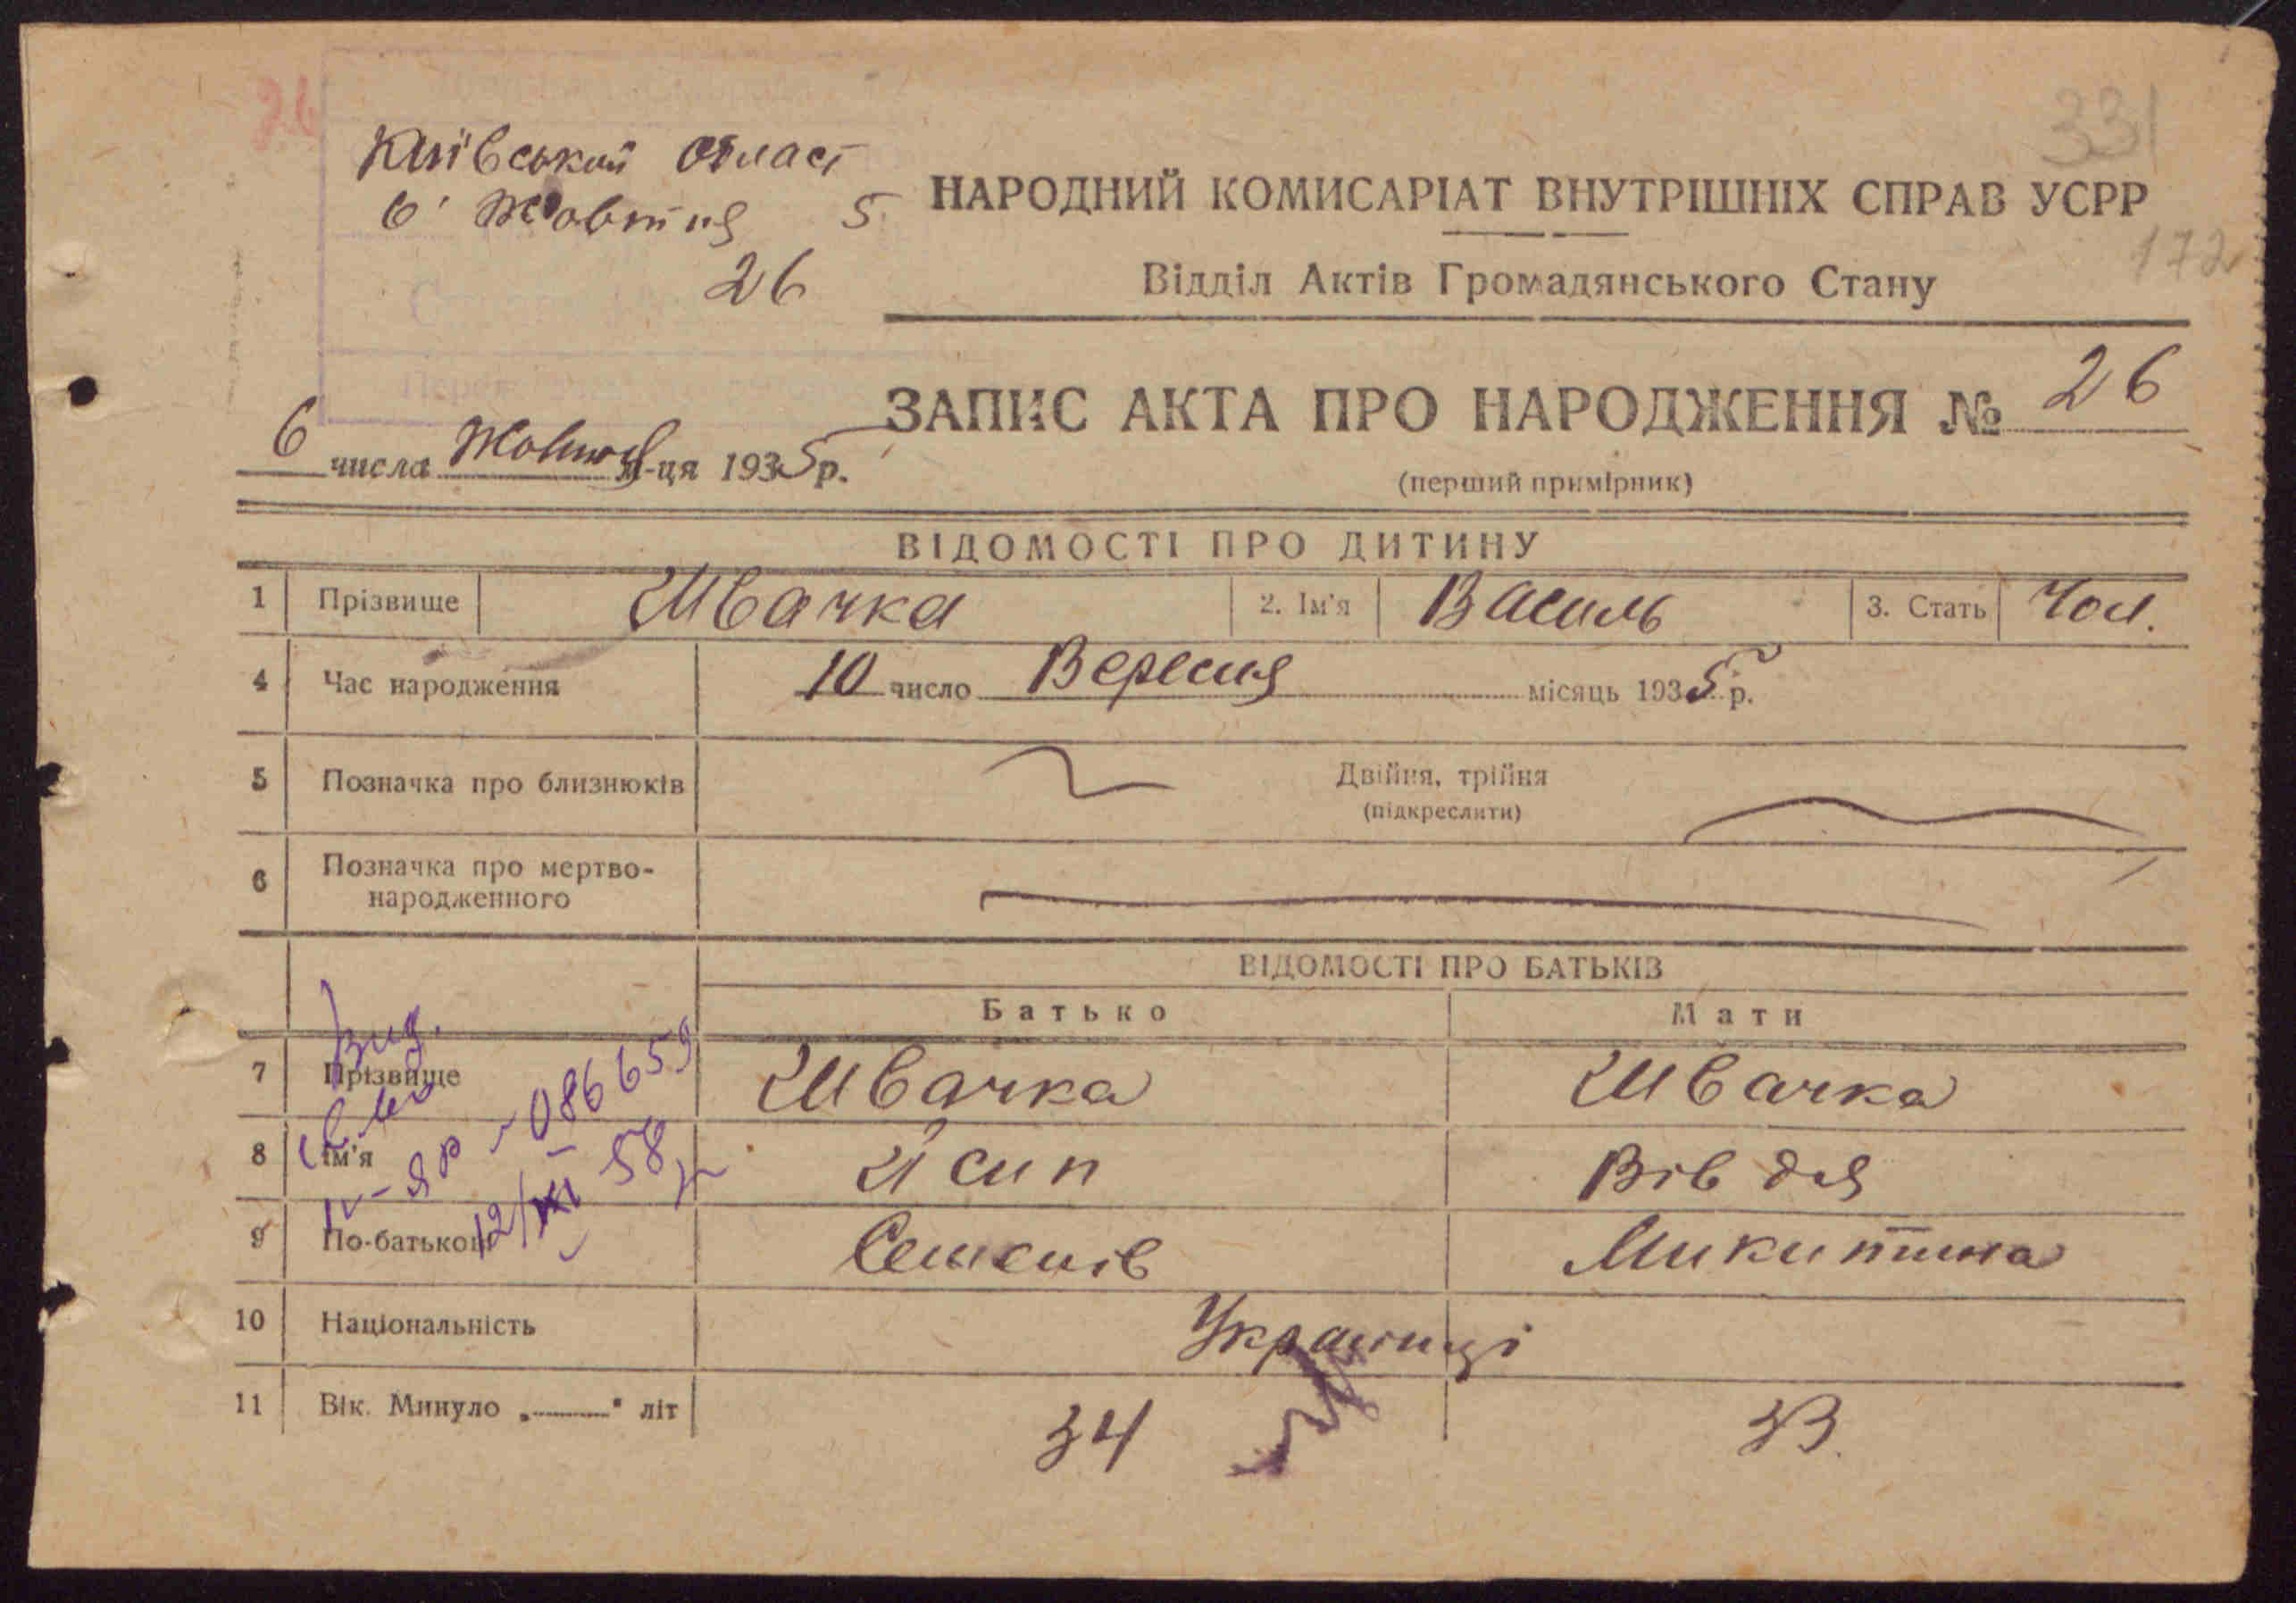 26
331
Київський област
6 Жовтня 5
26
НАРОДНИЙ КОМИСАРІАТ ВНУТРІШНІХ СПРАВ УСРР
172
Відділ Актів Громадянського Стану
ЗАПИС АКТА ПРО НАРОДЖЕННЯ № 26
6 числа Жовтня м-ця 1935 р.
(перший примірник)
ВІДОМОСТІ ПРО ДИТИНУ
1 Прізвище Швачка 2. Ім'я Василь 3. Стать Чол.
4 Час народження 10 число Вересня місяць 1935 р.
5 Позначка про близнюків Двійня, трійня
(підкреслити)
6 Позначка про мертво-
народженного
ВІДОМОСТІ ПРО БАТЬКІВ
Батько Мати
7 Прізвище Швачка Швачка
8 Ім'я Йсип Вівдя
9 По-батькові Семенів Микитина
10 Національність Українці
11 Вік. Минуло „ " літ 34 33
Вид.
086659
12/XI 58